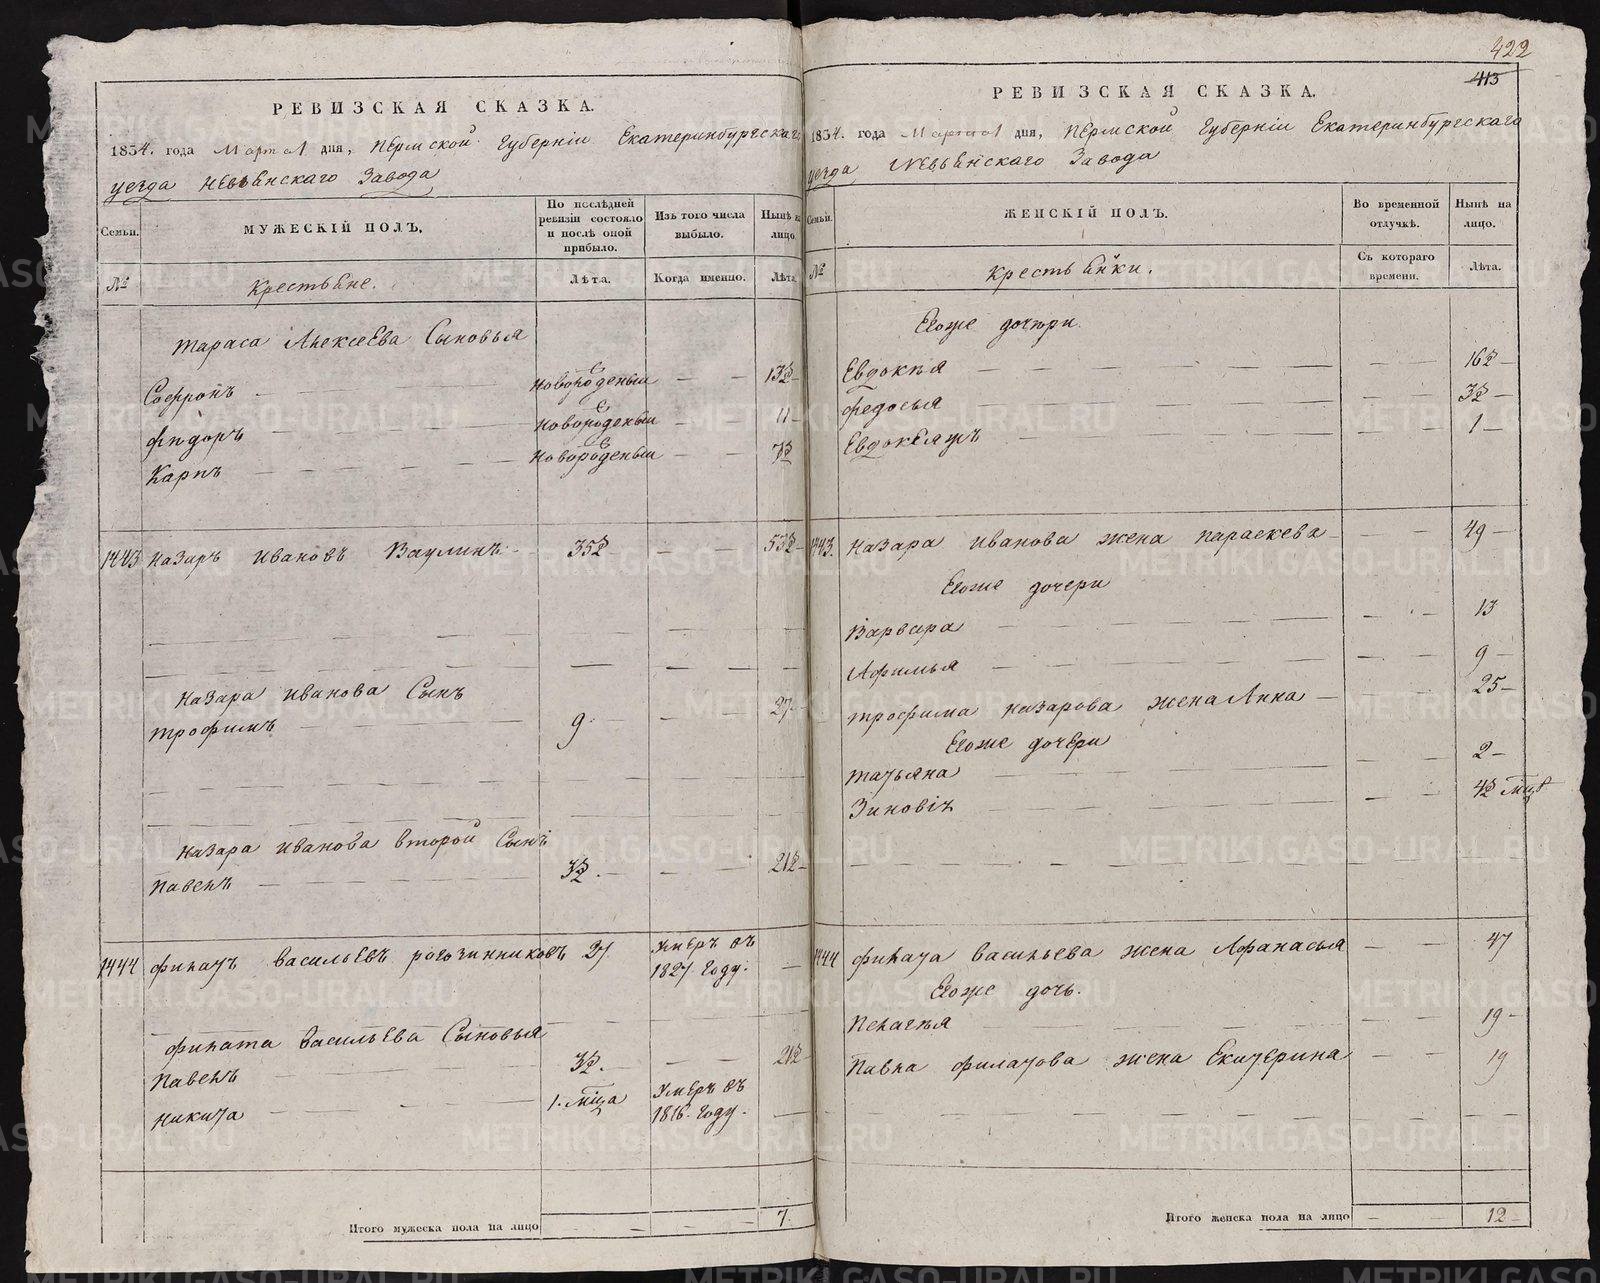 РЕВИЗСКАЯ СКАЗКА.
1834. года Марта 1 дня, Пермской Губернiи Екатеринбургскаго
уезда Невьѣнскаго Завода
Семьи.
МУЖЕСКІЙ ПОЛЪ.
По послѣдней ревизіи состояло и послѣ оной прибыло.
Изъ того числа выбыло.
Нынѣ на лицо.
№
Крестьѣне.
Лѣта.
Когда именно.
Лѣта.
Тараса Алексеева Сыновья
Софронъ новороденый 13½
Фиодоръ новороденый 11
Карпъ новороденый 7½
1443 Назаръ Ивановъ Ваулинъ 35½ 53½
Назара Иванова Сынъ
Трофимъ 9 27
Назара Иванова второй Сынъ
Павелъ 3½ 21½
1444 Филатъ Васильевъ Рогозинниковъ 27 Умеръ въ 1827 Году.
Филата Васильева Сыновья
Павелъ 3½ 21½
Никита 1. мѣца Умеръ въ 1816 Году.
Итого мужеска пола на лицо 7
422
413
РЕВИЗСКАЯ СКАЗКА.
1834. года Марта 1 дня, Пермской Губернiи Екатеринбургскаго
уезда Невьѣнскаго Завода
Семьи.
ЖЕНСКІЙ ПОЛЪ.
Во временной отлучкѣ.
Нынѣ на лицо.
№
Крестьѣнки.
Съ котораго времени.
Лѣта.
Егоже дочери.
Евдокѣя 16½
Федосья 3½
Евдокѣяжъ 1
1443. Назара Иванова жена Параскева 49
Егоже дочери
Варвара 13
Афимья 9
Трофима Назарова жена Анна 25
Егоже дочери
Татьяна 2
Зиновiѣ 4½ мѣц
1444 Филата Васильева жена Афанасья 47
Егоже дочь.
Пелагѣя 19
Павла Филатова жена Екатерина 19
Итого женска пола на лицо 12
METRIKI.GASO-URAL.RU